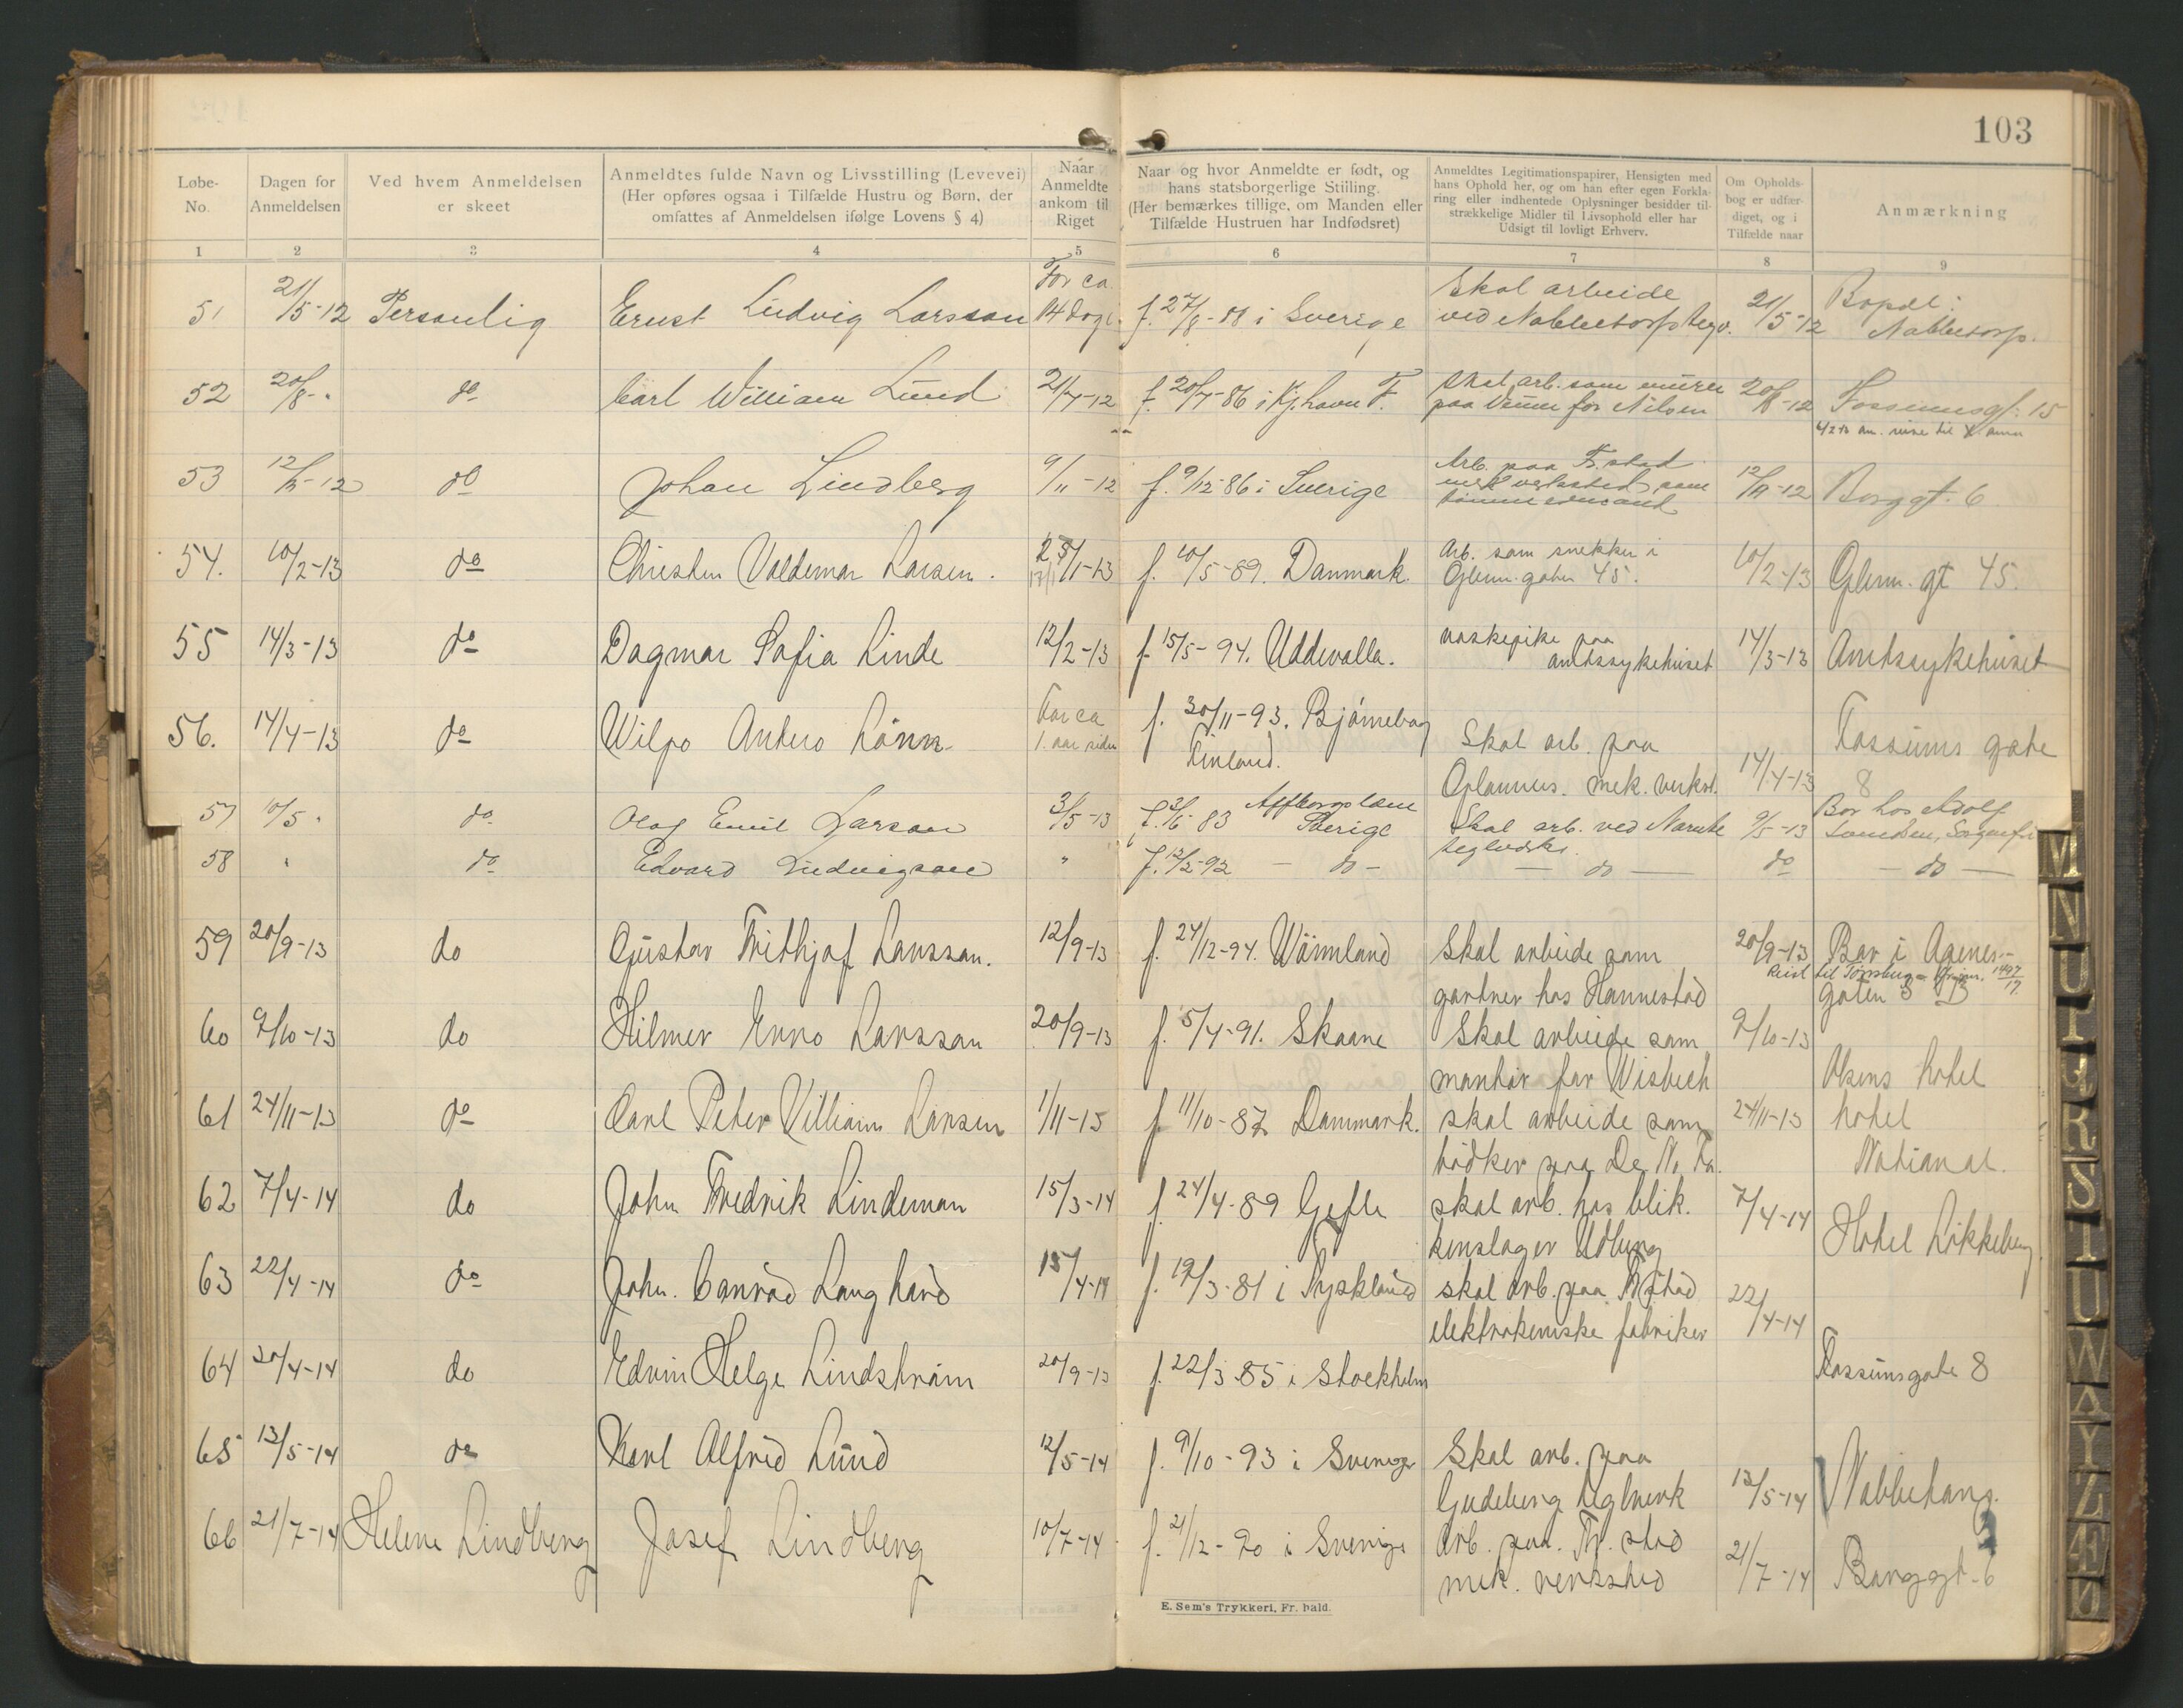 103
Løbe-
No.
Dagen for
Anmeldelsen
Ved hvem Anmeldelsen
er skeet
Anmeldtes fulde Navn og Livsstilling (Levevei)
(Her opføres ogsaa i Tilfælde Hustru og Børn, der
omfattes af Anmeldelsen ifølge Lovens § 4)
Naar
Anmeldte
ankom til
Riget
Naar og hvor Anmeldte er født, og
hans statsborgerlige Stilling.
(Her bemærkes tillige, om Manden eller
Tilfælde Hustruen har Indfødsret)
Anmeldtes Legitimationspapirer, Hensigten med
hans Ophold her, og om han efter egen Forkla-
ring eller indhentede Oplysninger besidder til-
strækkelige Midler til Livsophold eller har
Udsigt til lovligt Erhverv.
Om Opholds-
bog er udfær-
diget, og i
Tilfælde naar
Anmærkning
1 2 3 4 5 6 7 8 9
51 21/5-12 Personlig Ernst Ludvig Larsson For ca 14 dage f. 27/8-88 i Sverige Skal arbeide 21/5-12 Bopæl:
ved Nabbetorp tegv. Nabbetorp.
52 20/8-. do Carl William Lund 21/7-12 f. 20/7-86 i Kj.havn F. Skal arb. som murer 20/8-12 Fossumsgt. 15
paa for Nilsen
53 12/11-12 do Johan Lindberg 9/11-12 f. 9/12-86 i Sverige Arb. paa Fr.stad 12/11-12 Borggt. 6
mek verksted som
tømmermand
54. 10/2-13 do Christen Valdemar Larsen. 25/1-13 f. 10/5-89. Danmark. Arb. som snekker i 10/2-13 Glem. gt 45.
Glem. gaten 45.
55 14/3-13 do Dagmar Sofia Linde 12/2-13 f. 15/5-94. Uddevalla. vaskepike paa 14/3-13 Amtssykehuset
amtssykehuset
56. 14/4-13 do Wilpo Antero Lönn for ca f. 30/11-93. Bjørneborg Skal arb. paa 14/4-13 Fossums gate
1. aar siden Finland. mek. verkst. 8
57 10/5 . do Olof Emil Larsson 3/5-13 f. 3/6 83 Sverige Skal arb. ved 9/5-13 Bor hos Adolf
teglverk.
58 " do Edvard Ludvigsson " f. 12/2-92 - do - - do - do - do -
59 20/9-13 do Gustav Frithjof Larsson. 12/9-13 f. 24/12-94. Wärmland Skal arbeide som 20/9-13 Bor i Agenes-
gartner hos Hannestad Reist til Tønsberg
gaten 3 B
60 9/10-13 do Hilmer Enno Larsson 20/9-13 f. 5/4-91. Skaane Skal arbeide som 9/10-13
montør for Wisbech Olsens hotel
61 24/11-13 do Carl Peter Villiam Larsen 1/11-13 f 11/10-87 Danmark. skal arbeide som 24/11-13 hotel
bødker paa De No. Fa. National.
62 7/4-14 do John Fredrik Lindeman 15/3-14 f. 24/4-89 Gefle skal arb. hos blik. 7/4-14 Hotel Løkkeberg
kenslager Udberg
63 22/4-14 do John. Conrad Langhard 15/4-14 f. 19/3-81 i Tyskland skal arb. paa Fr.stad 22/4-14
elektrokemiske fabriker
64 30/4-14 do Edvin Helge Lindstrøm 20/9-13 f. 22/3-85 i Stockholm Fossumsgate 8
65 13/5-14 do Karl Alfred Lund 12/5-14 f. 9/10-93 i Sverige Skal arb. paa 13/5-14 Nabbehang.
Gudeberg teglverk
66 21/7-14 Helene Lindberg Josef Lindberg 10/7-14 f. 21/12-90 i Sverige Arb. paa. Fr. stad 21/7-14 Borggt-6
mek. verksted
E. Sem's Trykkeri, Fr. hald.
M
N
U
P
R
S
I
U
W
A
Y
Z
Æ
Ø